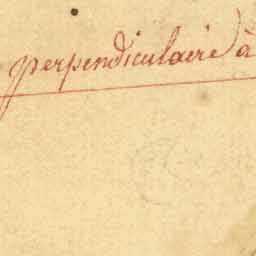 perpendiculaire à